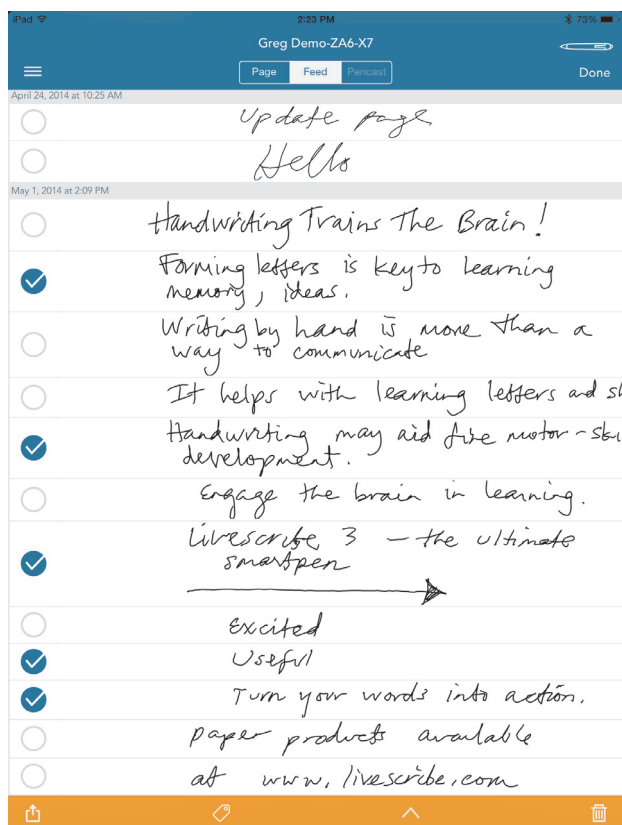 iPad 2:23 PM 73%
Greg Demo-ZA6-X7
Page Feed Pencast Done
April 24, 2014 at 10:25 AM
Update page
Hello
May 1, 2014 at 2:09 PM
Handwriting Trains The Brain!
Forming letters is key to learning
memory, ideas.
Writing by hand is more than a
way to communicate
It helps with learning letters and sh
Handwriting may aid fine motor-ski
development.
Engage the brain in learning.
Livescribe 3 – the ultimate
smartpen
Excited
Useful
Turn your words into action.
paper products available
at www.livescribe.com